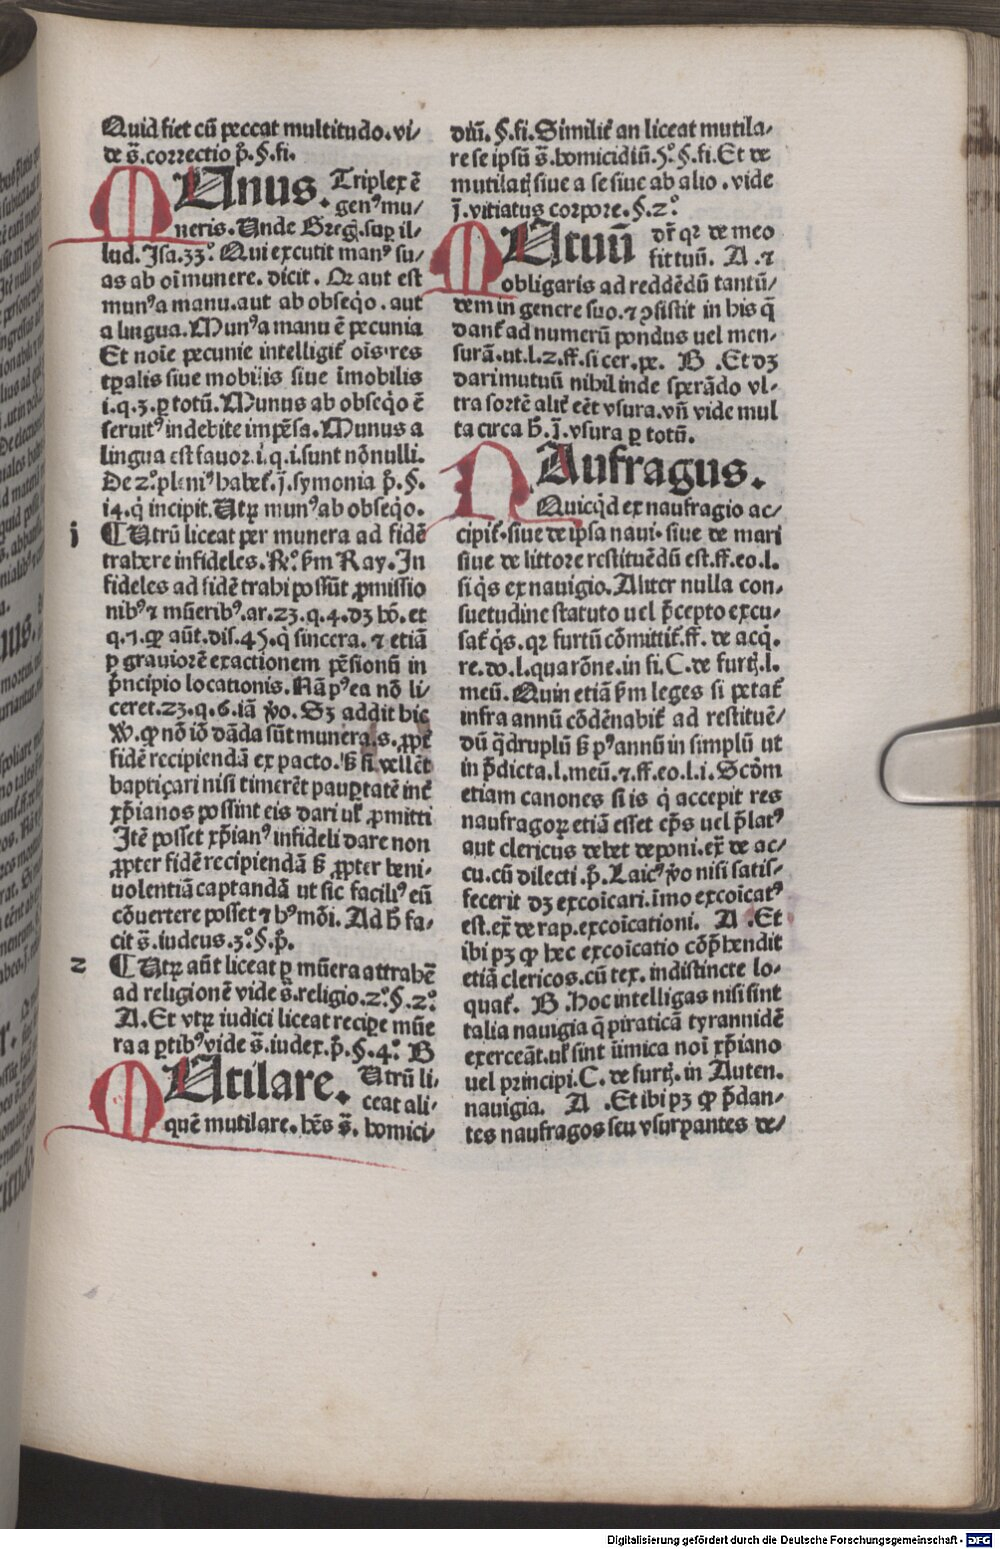 Quid fiet cũ peccat multitudo. vi/
de s̃. correctio p̃. §. fi.
MUnus. Triplex ē
genꝰ mu/
neris. Unde Greg̃. suꝑ il/
lud. Isa. 33.° Qui excutit manꝰ su/
as ab oĩ munere. dicit. Qꝛ aut est
munꝰ a manu. aut ab obseq̇o. aut
a lingua. Munꝰ a manu ē pecunia
Et noĩe pecunie intelligit̃ oĩs res
tꝑalis siue mobilis siue ĩmobilis
i. q. 3. ꝑ totũ. Munus ab obseq̇o ē
seruitꝰ indebite impẽsa. Munus a
lingua est fauor. i. q. i. sunt nõnulli.
De 2.° pleniꝰ habet̃. j̃. symonia p̃. §.
i4. q̇ incipit. Utꝝ munꝰ ab obseq̇o.
i ¶ Utrũ liceat per munera ad fidẽ
trahere infideles. R.° ẜm Ray. In
fideles ad fidẽ trahi possũt ꝓmissio
nibꝰ ⁊ mũeribꝰ. ar. 23. q. 4. dꝫ hõ. et
q. 7. ꝙ aũt. dis. 45. q̇ sincera. ⁊ etiã
ꝑ grauiorẽ exactionem pẽsionũ in
p̃ncipio locationis. Nã pꝰ ea nõ li/
ceret. 23. q. 6. iã ꝟo. Sꝫ addit hic
W̃. ꝙ nõ iõ dãda sũt munera. s. ꝓpt̃
fidẽ recipiendã ex pacto. ẜ si vellẽt
baptiçari nisi timerẽt pauꝑtatẽ int̃
xp̃ianos possint eis dari uł ꝓmitti
Itẽ posset xp̃ianꝰ infideli dare non
ꝓpter fidẽ recipiendã ẜ ꝓpter beni/
uolentiã captandã ut sic faciliꝰ eũ
cõuertere posset ⁊ hꝰmõi. Ad h̃ fa/
cit s̃. iudeus. 3.° §. p̃.
2 ¶ Utꝝ aũt liceat ꝑ mũera attrahẽ
ad religionẽ vide s̃. religio. 2.° §. 2.°
A. Et vtꝝ iudici liceat reciꝑe mũe
ra a ꝑtibꝰ vide s̃. iudex. p̃. §. 4.° B
MUtilare. Utrũ li/
ceat ali/
quẽ mutilare. hẽs s̃. homici/
diũ. §. fi. Similit̃ an liceat mutila/
re se ipsũ s̃. homicidiũ. 5.° §. fi. Et de
mutilatꝭ siue a se siue ab alio. vide
j̃. vitiatus corpore. §. 2.°
MUtuũ dr̃ qꝛ de meo
fit tuũ. A. ⁊
obligaris ad reddẽdũ tantũ/
dem in genere suo. ⁊ ↄsistit in his q̃
dant̃ ad numerũ pondus uel men/
surã. ut. l. 2. ff. si cer. pe. B. Et dꝫ
dari mutuũ nihil inde sperãdo vl/
tra sortẽ alit̃ eẽt vsura. vñ vide mul
ta circa h̃. j̃. vsura ꝑ totũ.
NAufragus.
Quicq̇d ex naufragio ac/
cipit̃. siue de ipsa naui. siue de mari
siue de littore restituẽdũ est. ff. eo. l.
si q̇s ex nauigio. Aliter nulla con/
suetudine statuto uel p̃cepto excu/
sat̃ q̇s. qꝛ furtũ cõmittit̃. ff. de acq̇.
re. do. l. qua rõne. in fi. C. de furtꝭ. l.
meũ. Quin etiã ẜm leges si petat̃
infra annũ cõdẽnabit̃ ad restituẽ/
dũ q̃druplũ ẜ pꝰ annũ in simplũ ut
in p̃dicta. l. meũ. ⁊. ff. eo. l. i. Scõm
etiam canones si is q̇ accepit res
naufragoꝝ etiã esset ep̃s uel p̃latꝰ
aut clericus debet deponi. ex̃ de ac/
cu. cũ dilecti. p̃. Laicꝰ ꝟo nisi satis/
fecerit dꝫ excoĩcari. ĩmo excoĩcatꝰ
est. ex̃ de rap. excoĩcationi. A. Et
ibi pꝫ ꝙ hec excoĩcatio cõp̃hendit
etiã clericos. cũ tex. indistincte lo/
quat̃. B. Hoc intelligas nisi sint
talia nauigia q̃ piraticã tyrannidẽ
exerceãt. uł sint ĩimica noĩ xp̃iano
uel principi. C. de furtꝭ. in Auten.
nauigia. A. Et ibi pꝫ ꝙ p̃dan/
tes naufragos seu vsurpantes de/
Digitalisierung gefördert durch die Deutsche Forschungsgemeinschaft - DFG